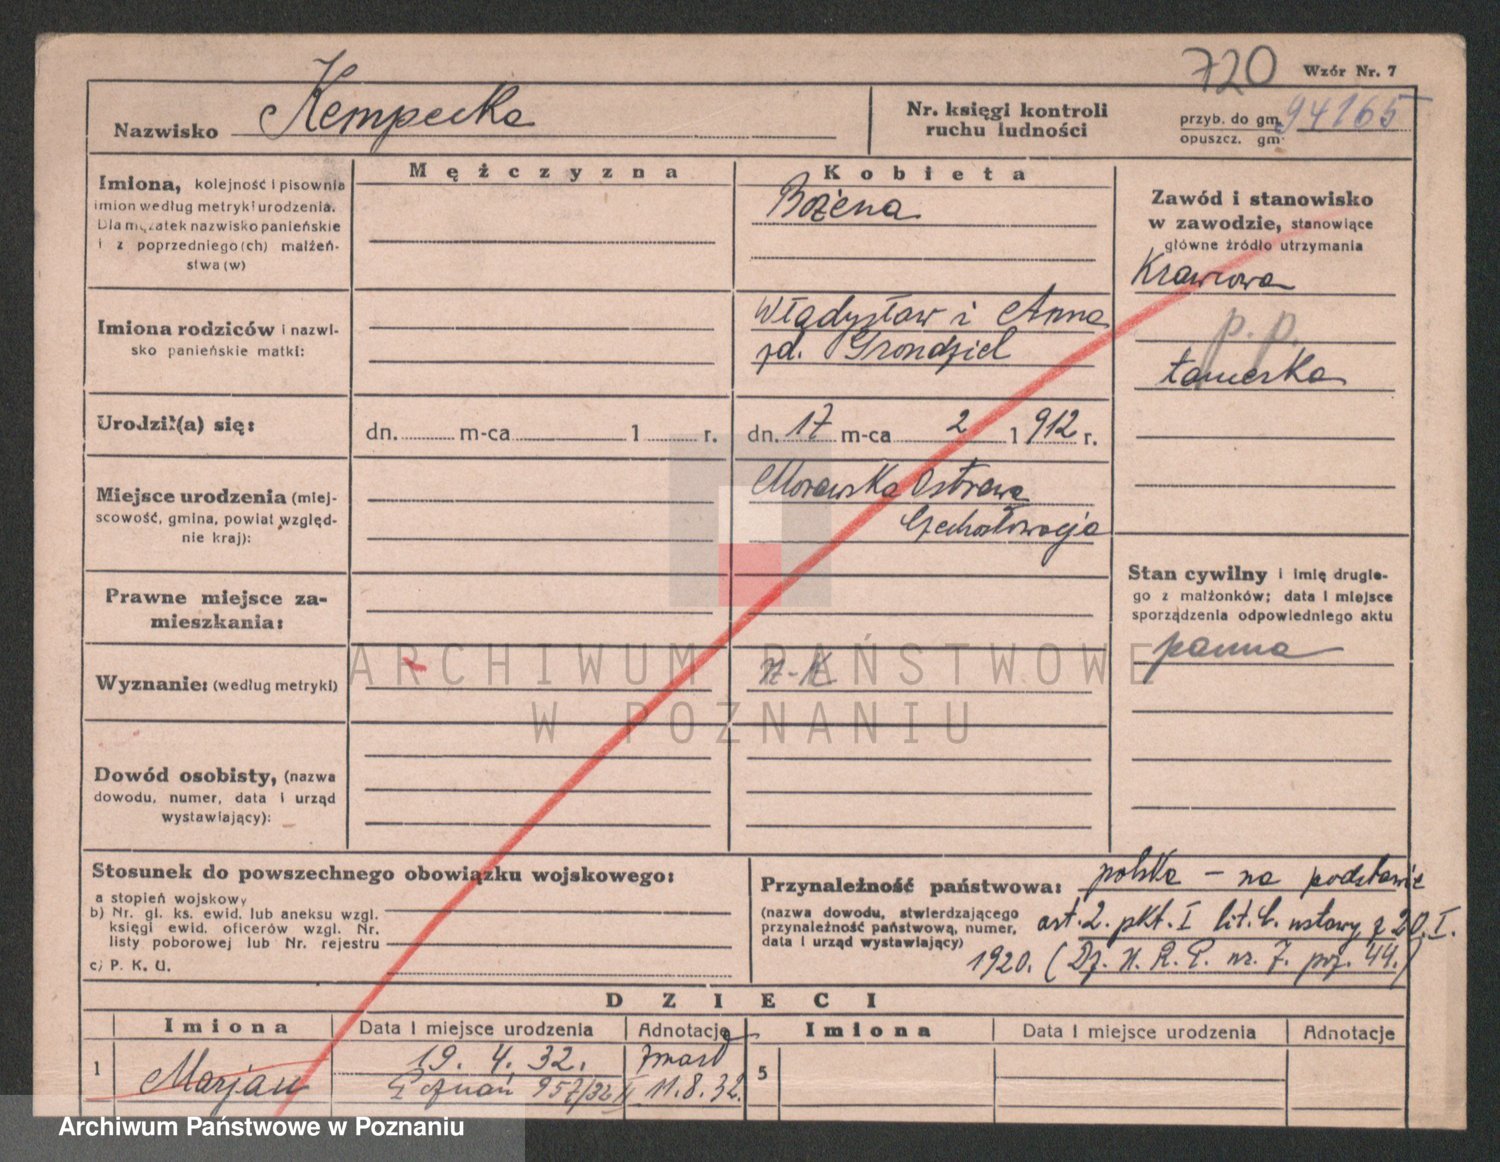 720
Wzór Nr. 7
Nazwisko Kempecka
Nr. księgi kontroli
ruchu ludności
przyb. do gm. 94165
opuszcz. gm.
Mężczyzna
Kobieta
Imiona, kolejność i pisownia
imion według metryki urodzenia.
Dla mężatek nazwisko panieńskie
i z poprzedniego(ch) małżeń-
stwa(w)
Bożena
Zawód i stanowisko
w zawodzie, stanowiące
główne źródło utrzymania
Krawcowa
p. p.
Imiona rodziców i nazwi-
sko panieńskie matki:
Władysław i Anna
zd. Grondziel
Urodził(a) się:
dn. m-ca 1 r.
dn. 17 m-ca 2 1912 r.
Miejsce urodzenia (miej-
scowość, gmina, powiat względ-
nie kraj):
Morawska Ostrawa
Czechosłowacja
Stan cywilny i imię drugie-
go z małżonków; data i miejsce
sporządzenia odpowiedniego aktu
panna
Prawne miejsce za-
mieszkania:
Wyznanie: (według metryki)
ARCHIWUM PAŃSTWOWE
W POZNANIU
Dowód osobisty, (nazwa
dowodu, numer, data i urząd
wystawiający):
Stosunek do powszechnego obowiązku wojskowego:
a stopień wojskowy
b) Nr. gl. ks. ewid. lub aneksu wzgl.
księgi ewid. oficerów wzgl. Nr.
listy poborowej lub Nr. rejestru
c) P. K. U.
Przynależność państwowa: polska - na podstawie
(nazwa dowodu, stwierdzającego
przynależność państwową, numer,
data i urząd wystawiający)
art. 2. pkt. I lit. b. ustawy z 20. I.
1920. (Dz. U. R. P. nr. 7. poz. 44.)
DZIECI
Imiona
Data i miejsce urodzenia
Adnotacje
Imiona
Data i miejsce urodzenia
Adnotacje
1
Marjan
19. 4. 32.
Poznań 957/32 II
zmarł
11.8.32.
5
Archiwum Państwowe w Poznaniu